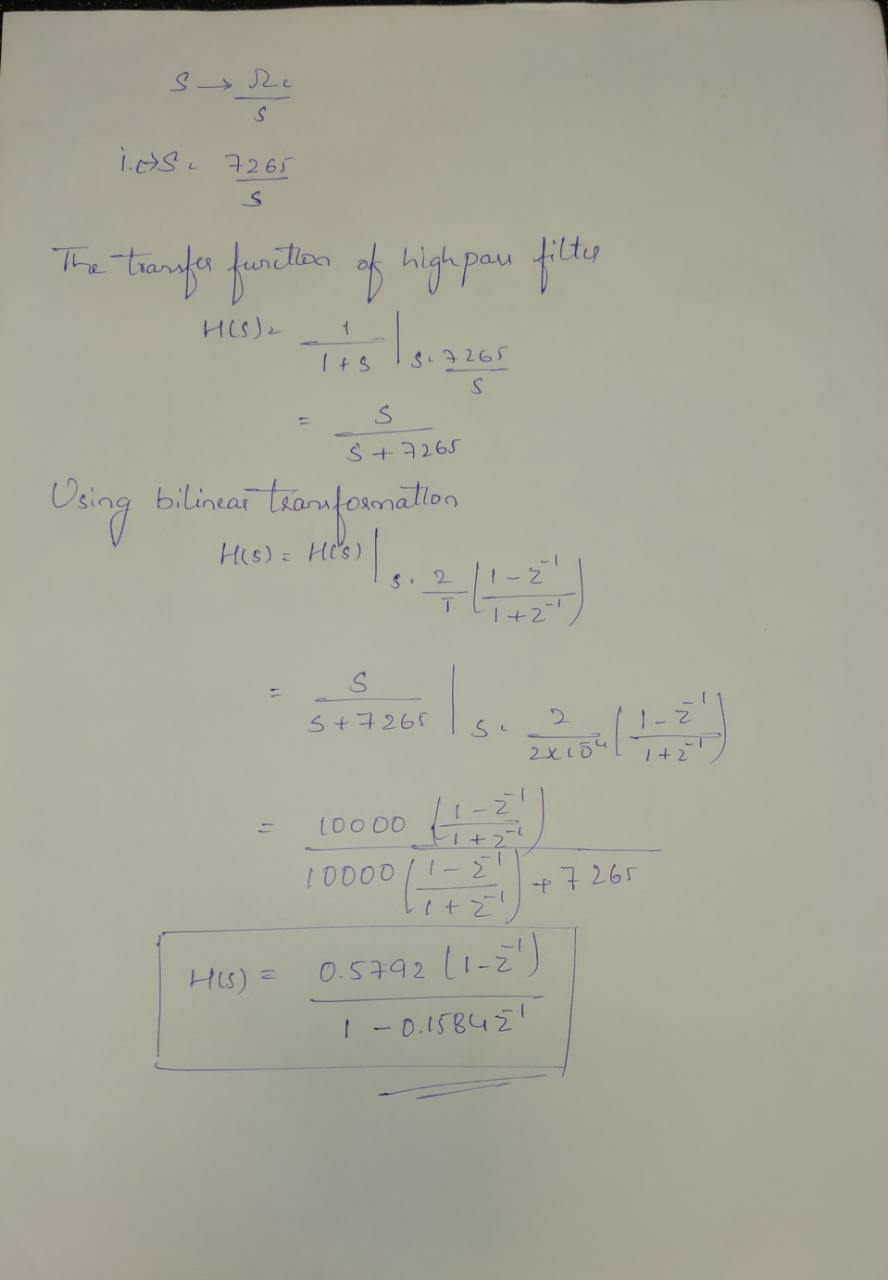 S → Ωc / S
i.e) S = 7265 / S
The transfer function of highpass filter
H(s) = 1 / (1 + s) | s = 7265 / S
= S / (S + 7265)
Using bilinear transformation
H(s) = H(s) | s = 2/T ((1 - z⁻¹) / (1 + z⁻¹))
= S / (S + 7265) | s = 2 / (2x10⁻⁴) ((1 - z⁻¹) / (1 + z⁻¹))
= 10000 ((1 - z⁻¹) / (1 + z⁻¹)) / (10000 ((1 - z⁻¹) / (1 + z⁻¹)) + 7265)
H(s) = 0.5792 (1 - z⁻¹) / (1 - 0.1584 z⁻¹)